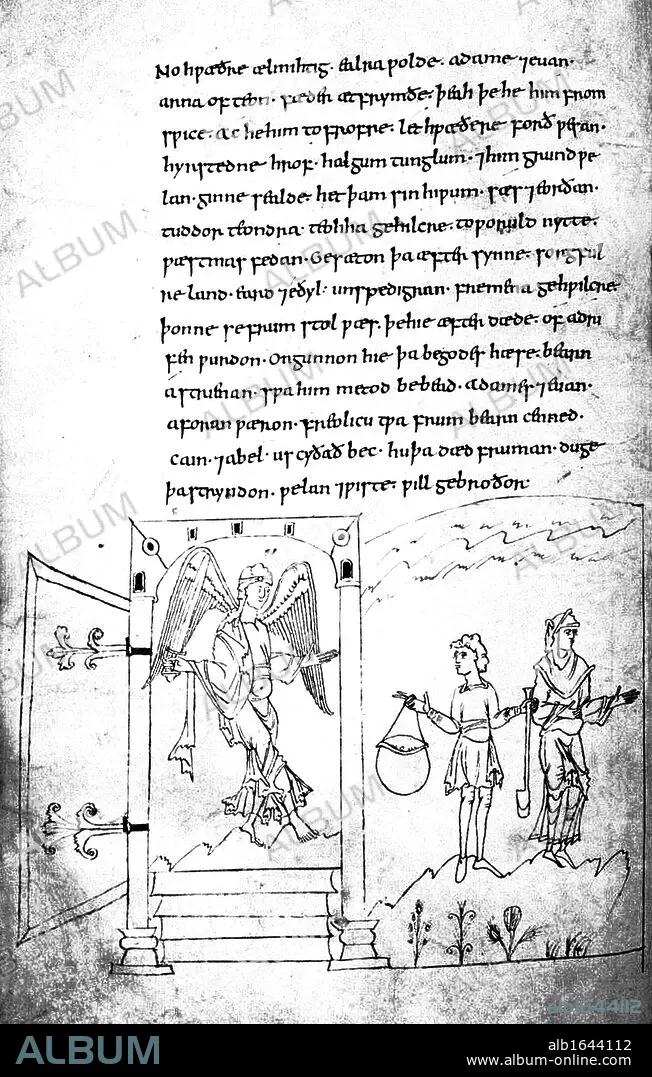 No hƿæðre ælmihtig · ealra ƿolde · adame ⁊ euan ·
arna of teon · fæder æt frymðe · þeah þe he him from
sƿice · ac he him to frofre · let hƿæðere forð ƿesan ·
hyrstedne hrof · halgum tunglum · ⁊ him grund ƿe
lan · ginne sealde · het þam sin hiƿum · sæs ⁊ eorðan ·
tuddor teondra · teohha gehƿilcre · to ƿoruld nytte ·
ƿæstmas fedan · Gesæton þa æfter synne · sorgful
re land · eard ⁊ eðyl · unspedigran · fremena gehƿilcre
þonne se frum stol ƿæs · þe hie æfter dæde · of adri
fen ƿurdon · Ongunnon hie þa be godes hæse · bearn
astrienan · sƿa him metod bebead · Adames ⁊ euan ·
aforan ƿæron · freolicu tƿa frum bearn cenned ·
Cain · ⁊ abel · us cyðað bec · hu þa dæd fruman · duge
þa stryndon · ƿelan ⁊ ƿiste · ƿill gebroðor
ALBUM
alb1644112
www.album-online.com